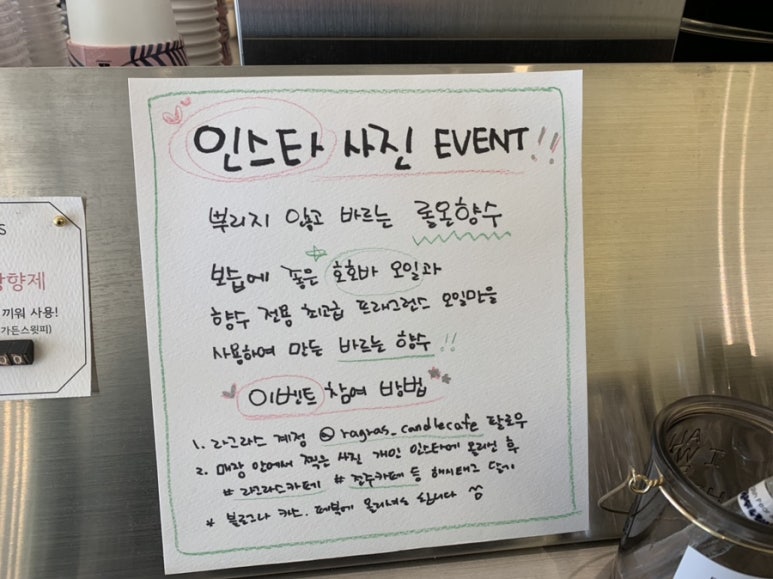 인스타 사진 EVENT!!
뿌리지 않고 바르는 롤온향수
보습에 좋은 호호바 오일과
향수 전용 최고급 프래그런스 오일만을
사용하여 만든 바르는 향수!!
이벤트 참여 방법
1. 라그라스 계정 @ragras_candlecafe 팔로우
2. 매장 안에서 찍은 사진 개인 인스타에 올리신 후
# 라그라스카페 # 진주카페 등 해시태그 달기
* 블로그나 카스, 페북에 올리셔도 됩니다
향제
끼워 사용!
가든스윗피)